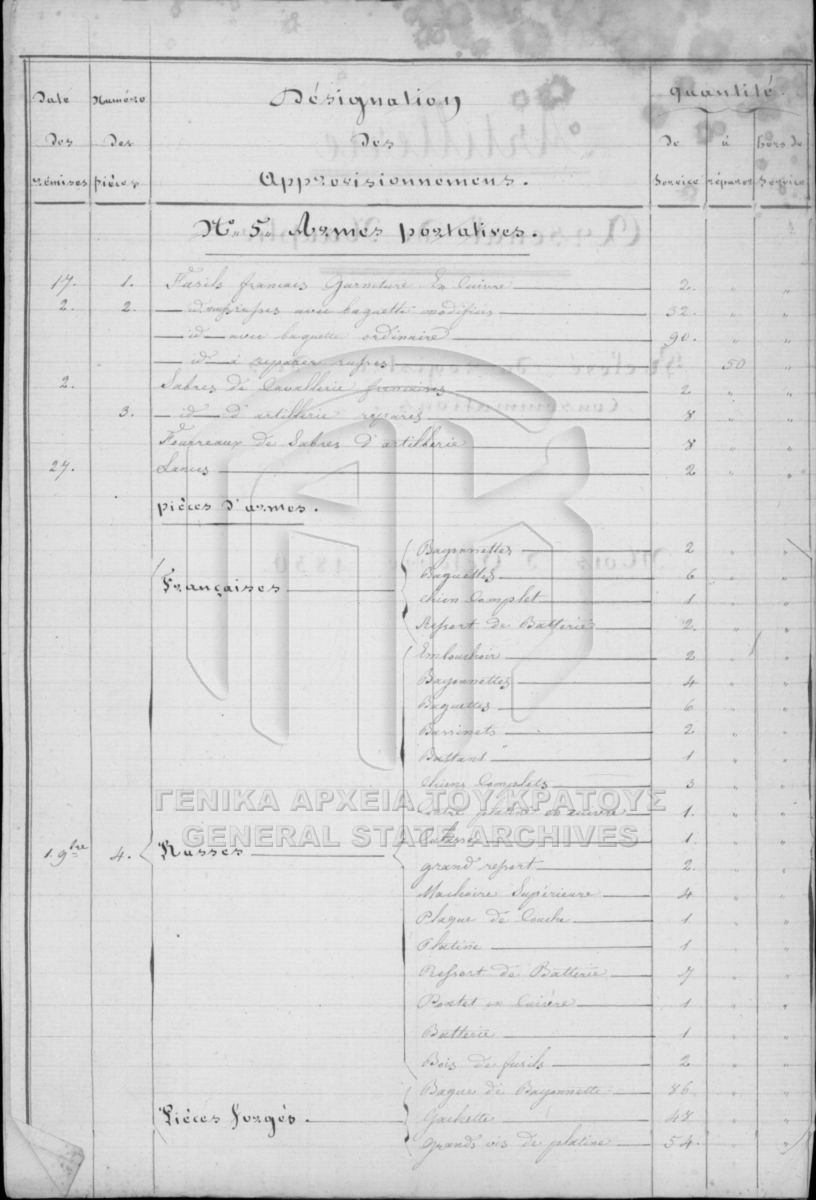 Date Numéro Désignation quantité.
Des Des Des De à hors de
remises pièces Approvisionnemens. Service réparer Service
N° 5. Armes portatives.
17. 1. Fusils français Garniture En Cuivre 2. " "
2. 2. id russes avec baguette modifiées 32. " "
id avec baguette ordinaire 90. " "
id à réparer russes " 50 "
2. Sabres de Cavallerie françaises 2 " "
3. id d'artillerie réparés 8 " "
Fourreaux de Sabres d'artillerie 8 " "
27. Lances 2 " "
pièces d'armes.
Françaises
Bayonnettes 2 " "
Baguettes 6 " "
chien Complet 1 " "
Ressort de Batterie 2. " "
1. 9bre 4. Russes
Embouchoir 2 " "
Bayonnettes 4 " "
Baguettes 6 " "
Bassinets 2 " "
Battant 1 " "
chiens Complets 3 " "
Contre platine en cuivre 1. " "
1. " "
grand ressort 2. " "
Machoire Supérieure 4 " "
Plaque de Couche 1 " "
Platine 1 " "
Ressort de Batterie 7 " "
Pontet en Cuivre 1 " "
Batterie 1 " "
Bois de fusils 2 " "
Pièces forgés.
Bague de Bayonnette 86. " "
Gachette 48 " "
Grands vis de platine 54. " "
ΓΕΝΙΚΑ ΑΡΧΕΙΑ ΤΟΥ ΚΡΑΤΟΥΣ
GENERAL STATE ARCHIVES